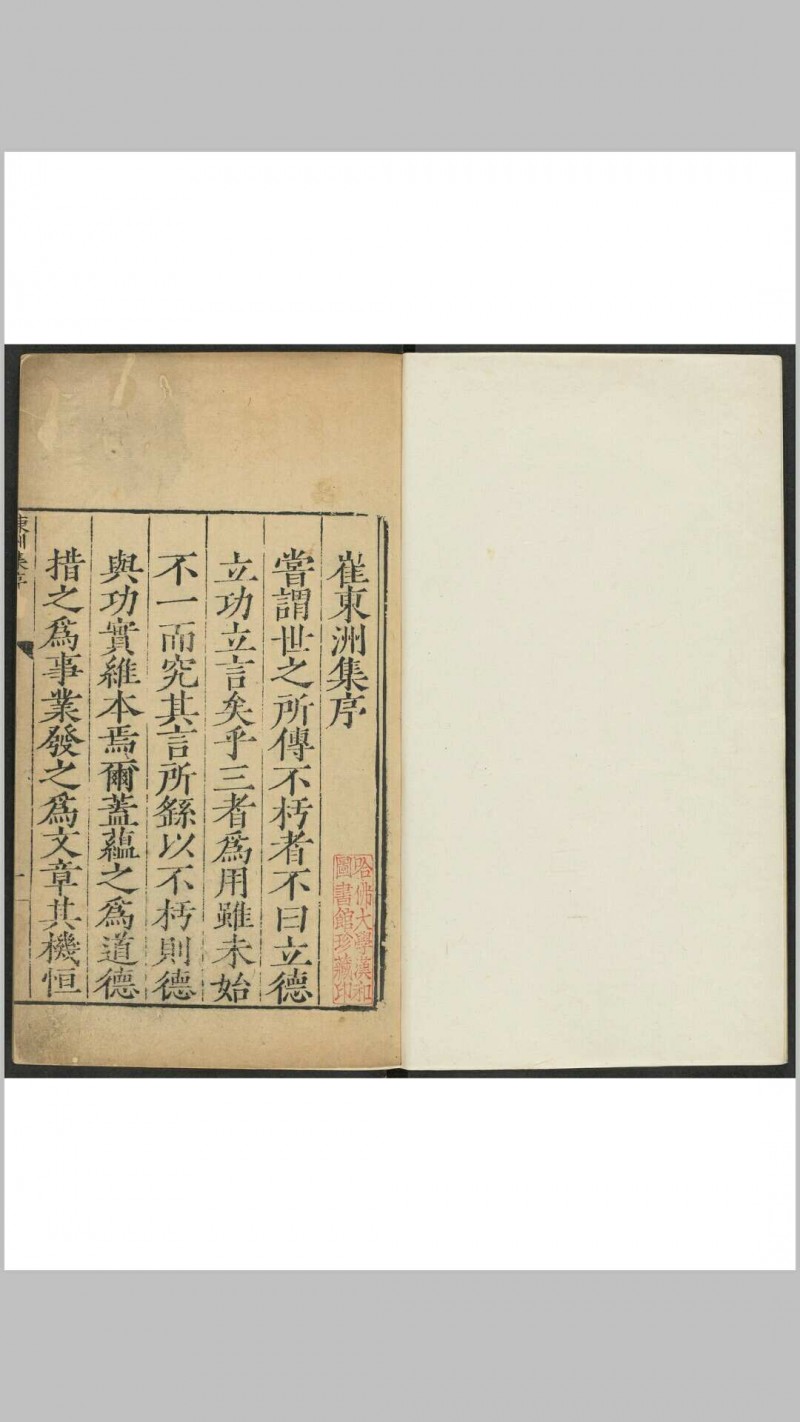 崔東洲集序
嘗謂世之所傳不朽者不曰立德
立功立言矣乎三者爲用雖未始
不一而究其言所繇以不朽則德
與功實維本焉爾蓋蘊之爲道德
措之爲事業發之爲文章其機恒
哈佛大學漢和
圖書館珍藏印
東洲集序
一